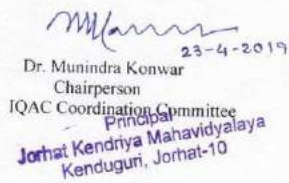 23-4-2019
Dr. Munindra Konwar
Chairperson
IQAC Coordination Committee
Principal
Jorhat Kendriya Mahavidyalaya
Kenduguri, Jorhat-10